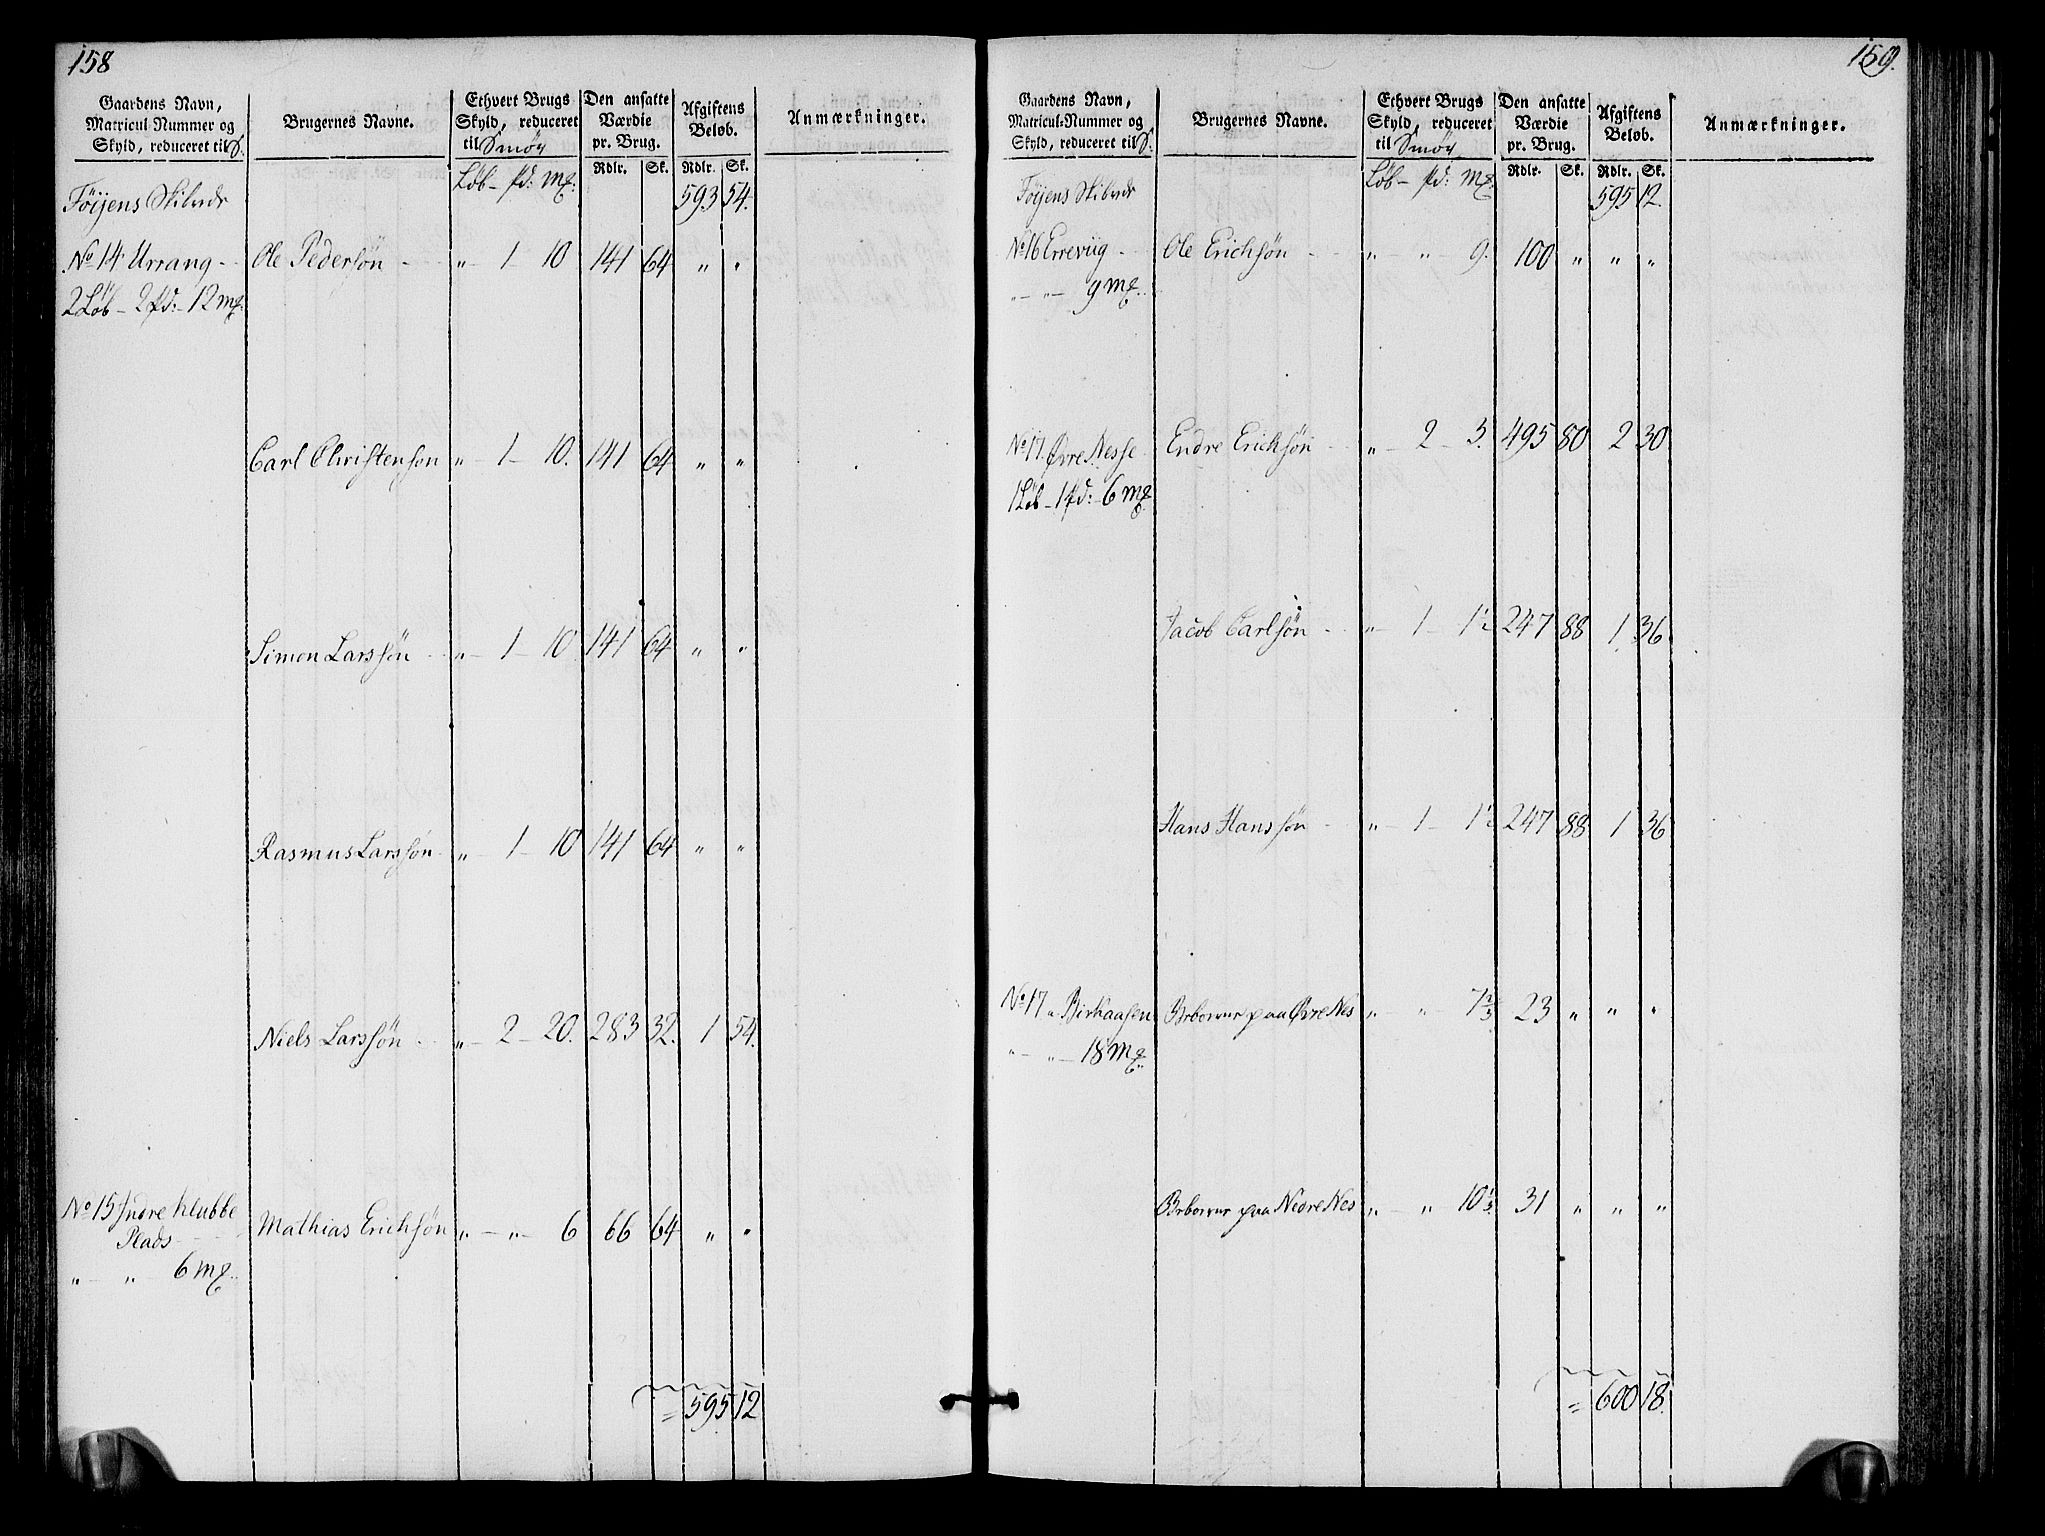 158
Gaardens Navn, Matricul-Nummer og Skyld, reduceret til S. | Brugernes Navne. | Ethvert Brugs Skyld, reduceret til Smör | Den ansatte Værdie pr. Brug. | Afgiftens Beløb. | Anmærkninger.
Löb - pd: Mk: | Rdlr. | Sk. | Rdlr. | Sk.
Föijens Skibrede | 593 | 54.
No 14 Urrang - | Ole Pedersön | " - 1 - 10 | 141 | 64 | " | "
2 Löb - 2 pd: - 12 mk:
Carl Christenson | " - 1 - 10. | 141 | 64 | " | "
Simon Larssön | " - 1 - 10 | 141 | 64 | " | "
Rasmus Larssön | " - 1 - 10 | 141 | 64 | " | "
Niels Larssön | " - 2 - 20. | 283 | 32. | 1 | 54.
No 15 Indre Klubbe
Plads | Mathias Erichsön | " - " - 6 | 66 | 64 | " | "
" - " - 6 mk.
= 595 | 12
159.
Gaardens Navn, Matricul-Nummer og Skyld, reduceret til S. | Brugernes Navne. | Ethvert Brugs Skyld, reduceret til Smör | Den ansatte Værdie pr. Brug. | Afgiftens Beløb. | Anmærkninger.
Löb - pd: Mk: | Rdlr. | Sk. | Rdlr. | Sk.
Föijens Skibrede | 595 | 12.
No 16 Erreviig | Ole Erichsön | " - " - 9. | 100 | " | " | "
" - " - 9 mk.
No 17. Øvre Nesse | Endre Erichsön | " - 2 - 3. | 495 | 80 | 2 | 30
1 Löb - 1 pd: - 6 mk
Jacob Carlsön | " - 1 - 1½ | 247 | 88 | 1 | 36
Hans Hanssön | " - 1 - 1½ | 247 | 88 | 1 | 36
No 17 a Birkaasen | Beboerne paa Øvre Nes | " - " - 7⅔ | 23 | " | " | "
" - " - 18 mk.
Beboerne paa Nedre Nes | " - " 10⅓ | 31 | " | " | "
= 600 | 18.